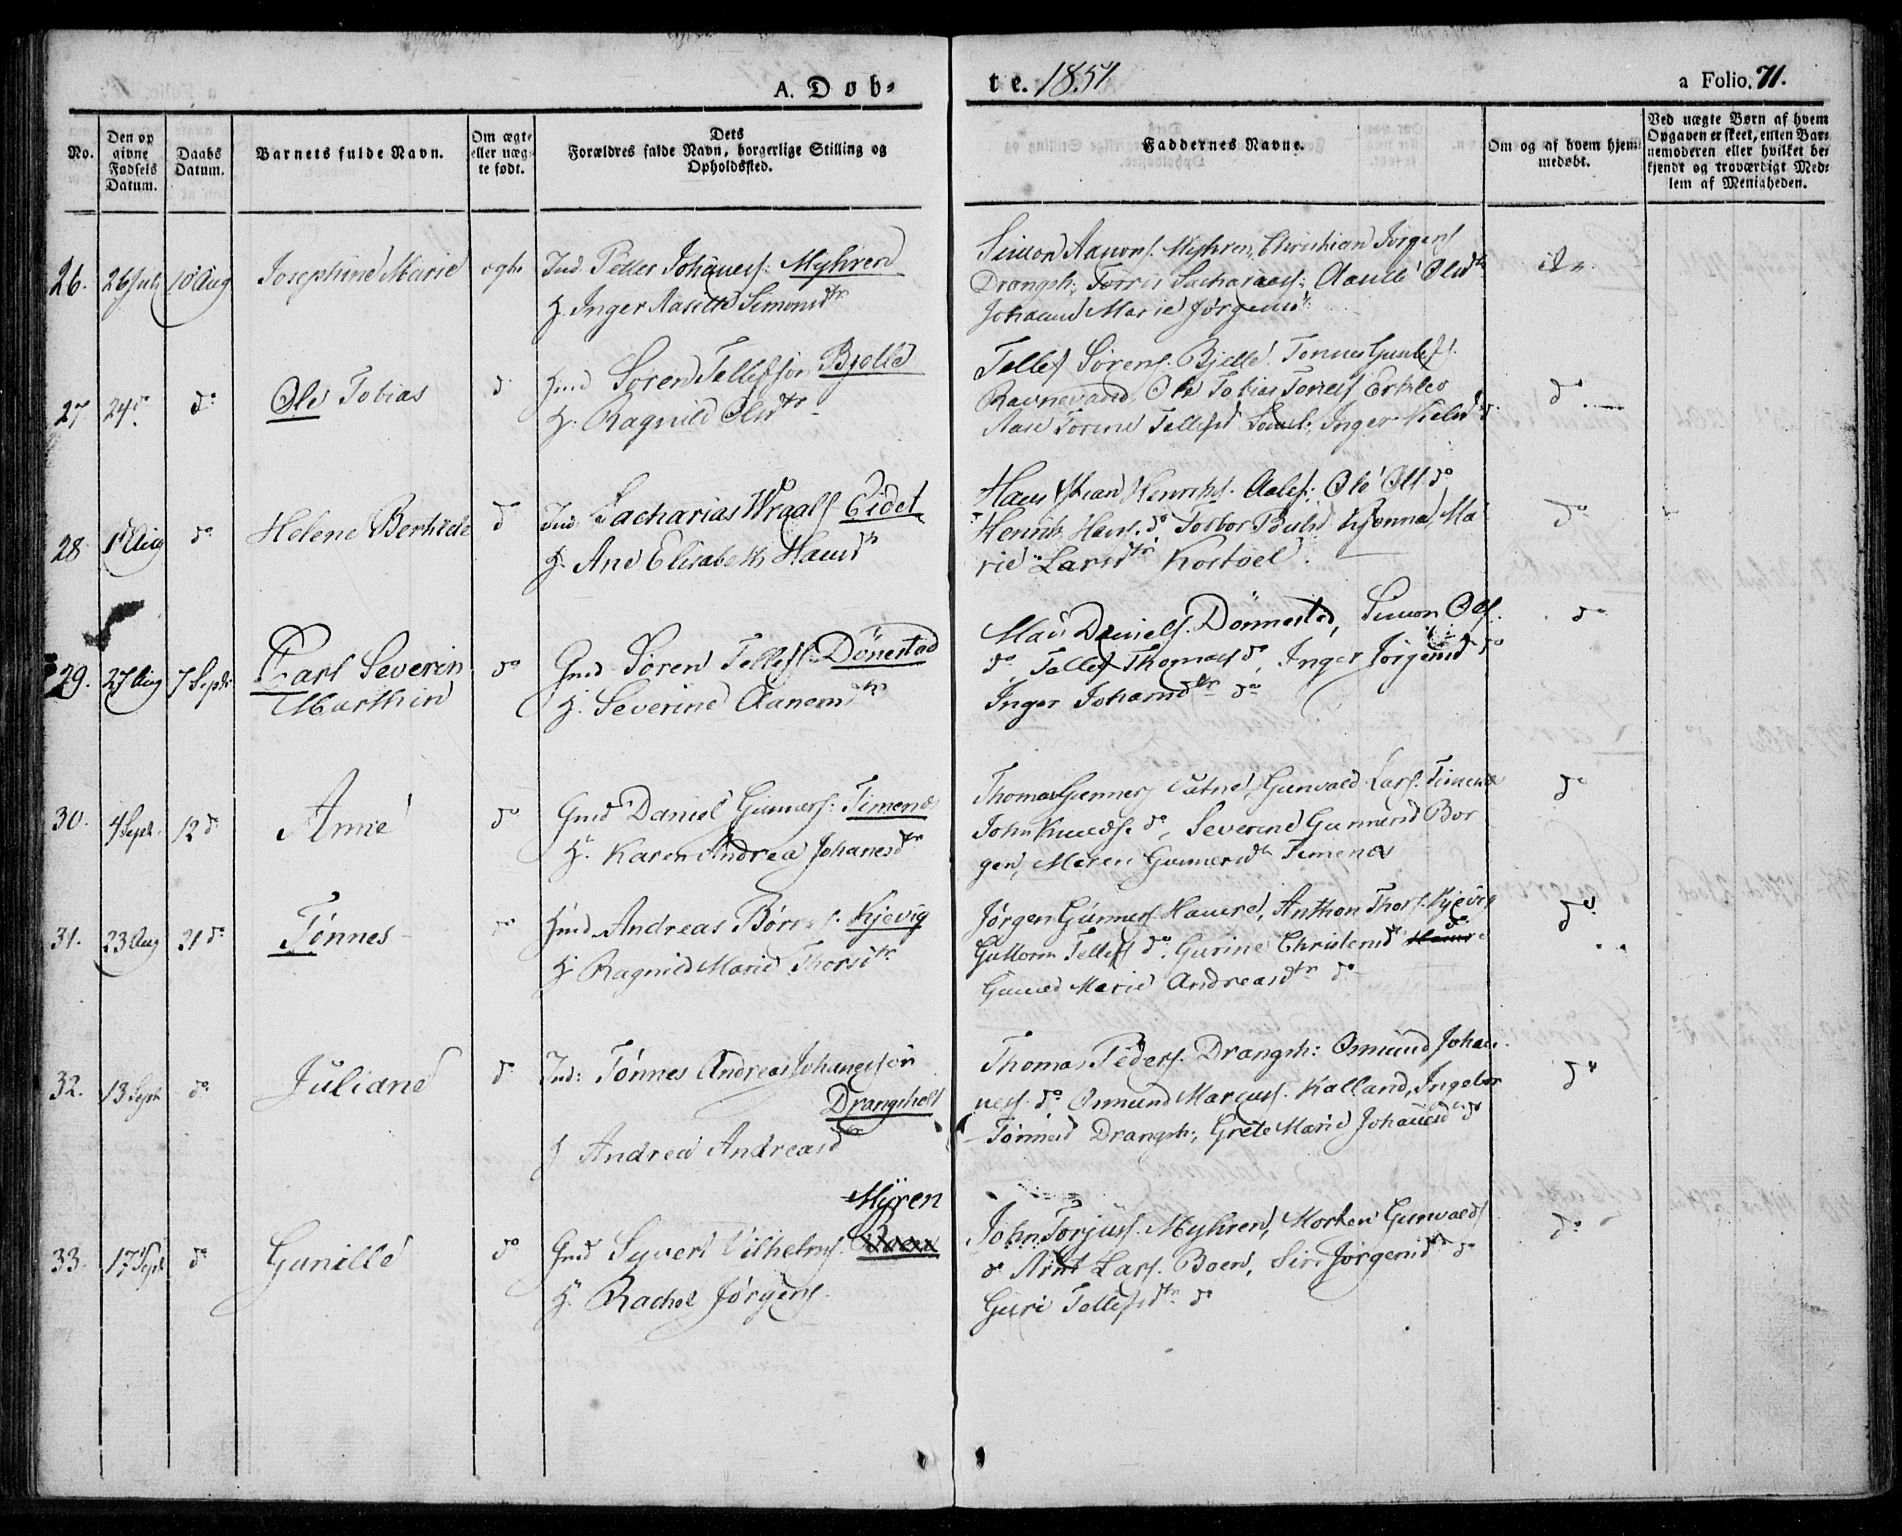 A. Døb-
te. 1851
a Folio. 71.
No.
Den op
givne
Fødsels
Datum.
Daabs
Datum.
Barnets fulde Navn.
Om ægte
eller uæg-
te født.
Dets
Forældres fulde Navn, borgerlige Stilling og
Opholdssted.
Faddernes Navne.
Om og af hvem hjem-
medøbt.
Ved uægte Børn af hvem
Opgaven er skeet, enten Bar-
nemoderen eller hvilket be-
kjendt og troværdigt Med-
lem af Menigheden.
26. 26 July 10 Aug Josephine Marie ægte Ind Peder Johanes: Myhren
H. Inger Aasille Simonsdtr
Simon Aanons. Myhren, Christian Jørgens
Drangsh:, Torris Sacharaes: Aasille Olsdtr
Johanne Marie Jørgensdtr
27 24 do do Ole Tobias do Hmd Søren Tellefsøn Bjelle
H. Ragnild Olsdtr
Tellef Sørens. Bjelle, Tønnes Gunlefs.
Ravnevand, Ole Tobias Torrels Erkleo
Aase Torine Tellefsd, Inger Nielsd do
do
28 1 Aug do Helene Berthede do Ind Zacharias Wraals Eidet
H. Ane Elisabeth Hansdtr
Hans Henriks. Aalefs: Ole Ols do
Henrik Hans. do Torbor Kjønna, Ma
rie Larsdtr Kostøel.
do
29. 27 Aug 7 Septr Carl Severin
Marthin
do Gmd Søren Tellefs: Dönestad
H. Severine Aanensdtr
Mads Daniels. Dönnestad, Simon Ols.
do, Tellef Thomass do, Inger Jørgensd do
Inger Johansdtr do
do
30. 4 Sept. 12 do Anne do Gmd Daniel Gunners: Timenes
H. Karen Andrea Johanesdtr
Thomas Gunners Gunvald Lars. Timenes
John Knuds. do, Severine Gunnersd Bor
gen, Maren Gunnersdtr Timenes
do
31. 23 Aug 21 do Tønnes do Hmd Andreas Børres. Kjevig
H. Ragnild Marie Thorsdtr
Jørgen Gunners. Hamre, Anthon Thors. Kjevig
Guttorm Tellefs do, Gurine Christensd Hamre do
Gunild Marie Andreasdtr do
do
32. 13 Sept do Juliane do Ind: Tønnes Andreas Johanesøn
Drangsholt
H Andrea Andreasdtr
Thomas Peders. Drangsh: Osmund Johan
nes. do Osmund Marcuss. Kalland, Ingebor
Tønnesd Drangsh:, Grete Marie Johanesd do
do
33. 17 Sept do Gunille do Gmd Syvert Vilhelms. Boen
Myren
H. Rachel Jørgens.
John Torjus. Myhren, Morten Gunvalds
do Arnt Lars. Boen, Siri Jørgensdtr do
Guri Tellefsdtr do
do